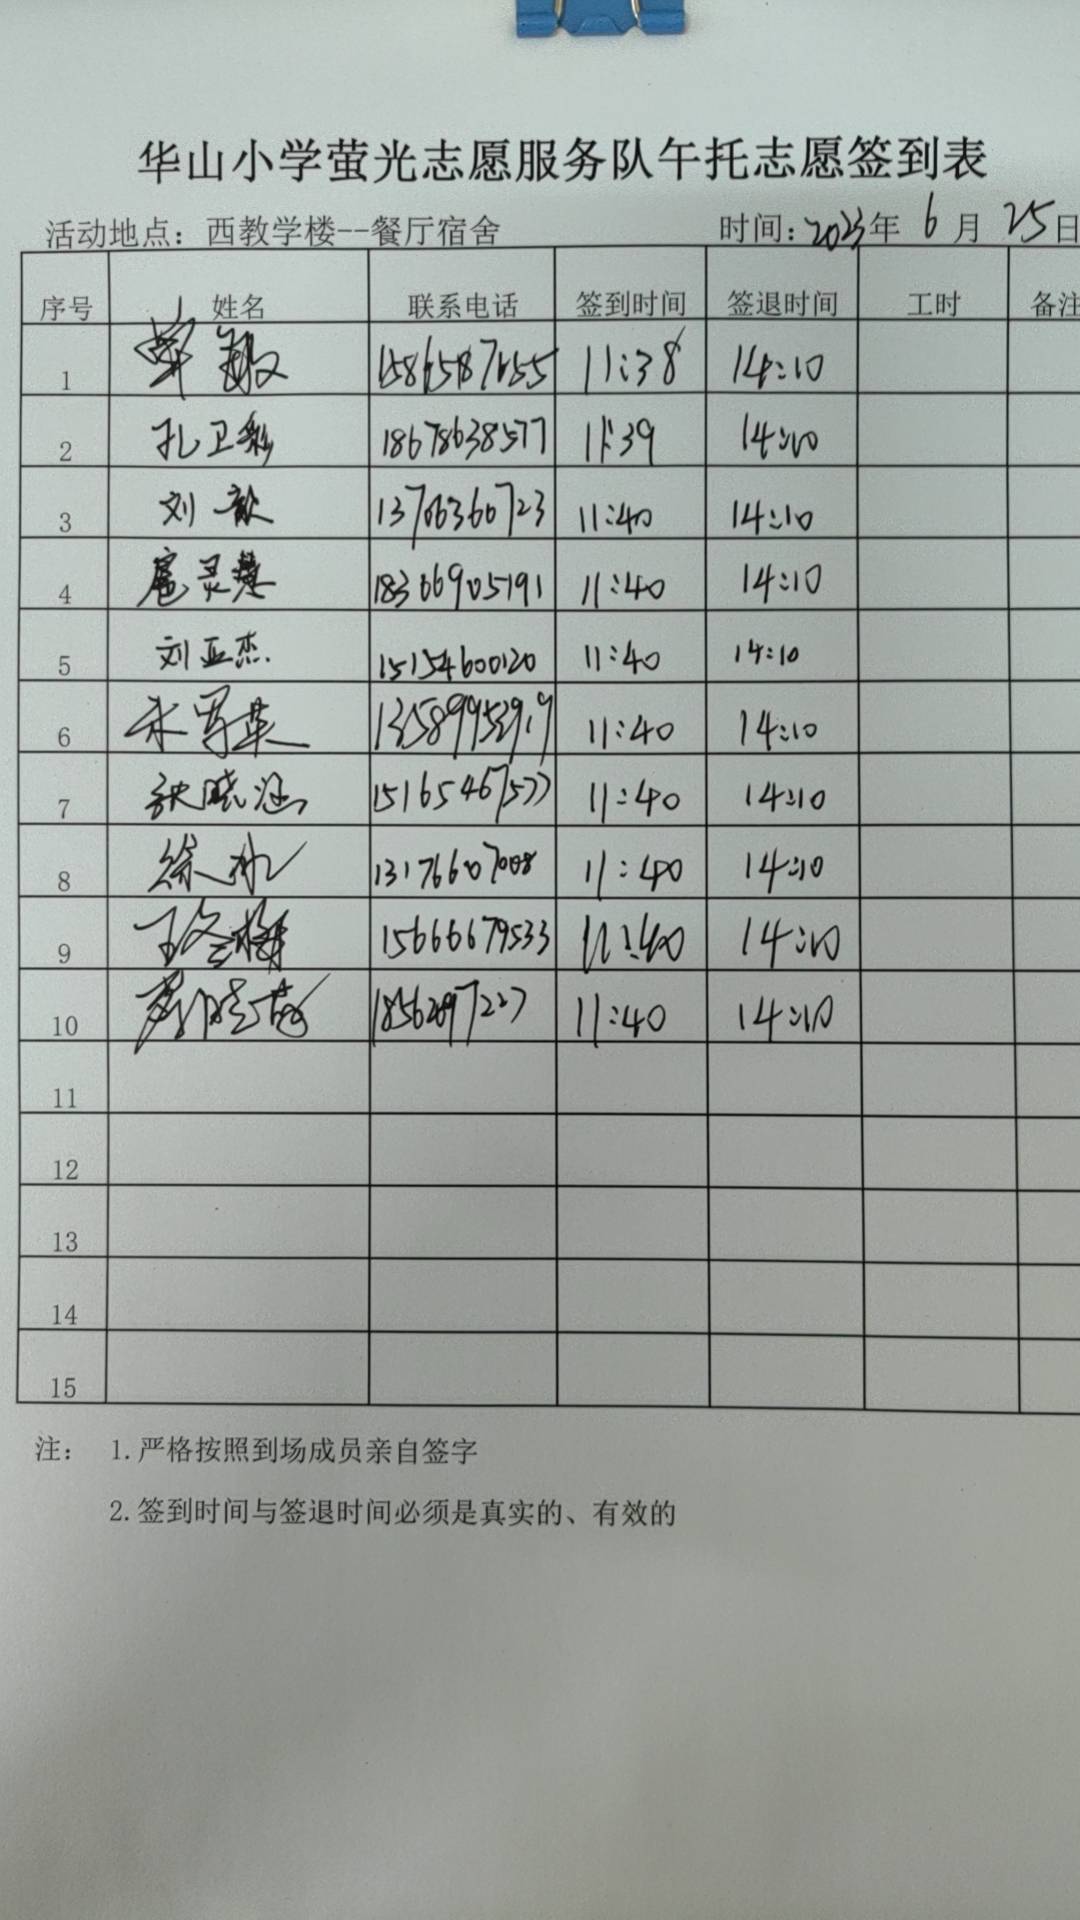 华山小学萤光志愿服务队午托志愿签到表
活动地点：西教学楼--餐厅宿舍 时间：2023年 6 月 25日
序号 姓名 联系电话 签到时间 签退时间 工时 备注
1 15865187655 11:38 14:10
2 孔卫彩 18678638577 11:39 14:10
3 刘歆 13706360723 11:40 14:10
4 扈灵慧 18366905191 11:40 14:10
5 刘亚杰 15154600120 11:40 14:10
6 11:40 14:10
7 张晓涵 15165467577 11:40 14:10
8 徐冰 13176607008 11:40 14:10
9 王冬梅 15666679533 11:40 14:10
10 11:40 14:10
11
12
13
14
15
注： 1.严格按照到场成员亲自签字
2.签到时间与签退时间必须是真实的、有效的